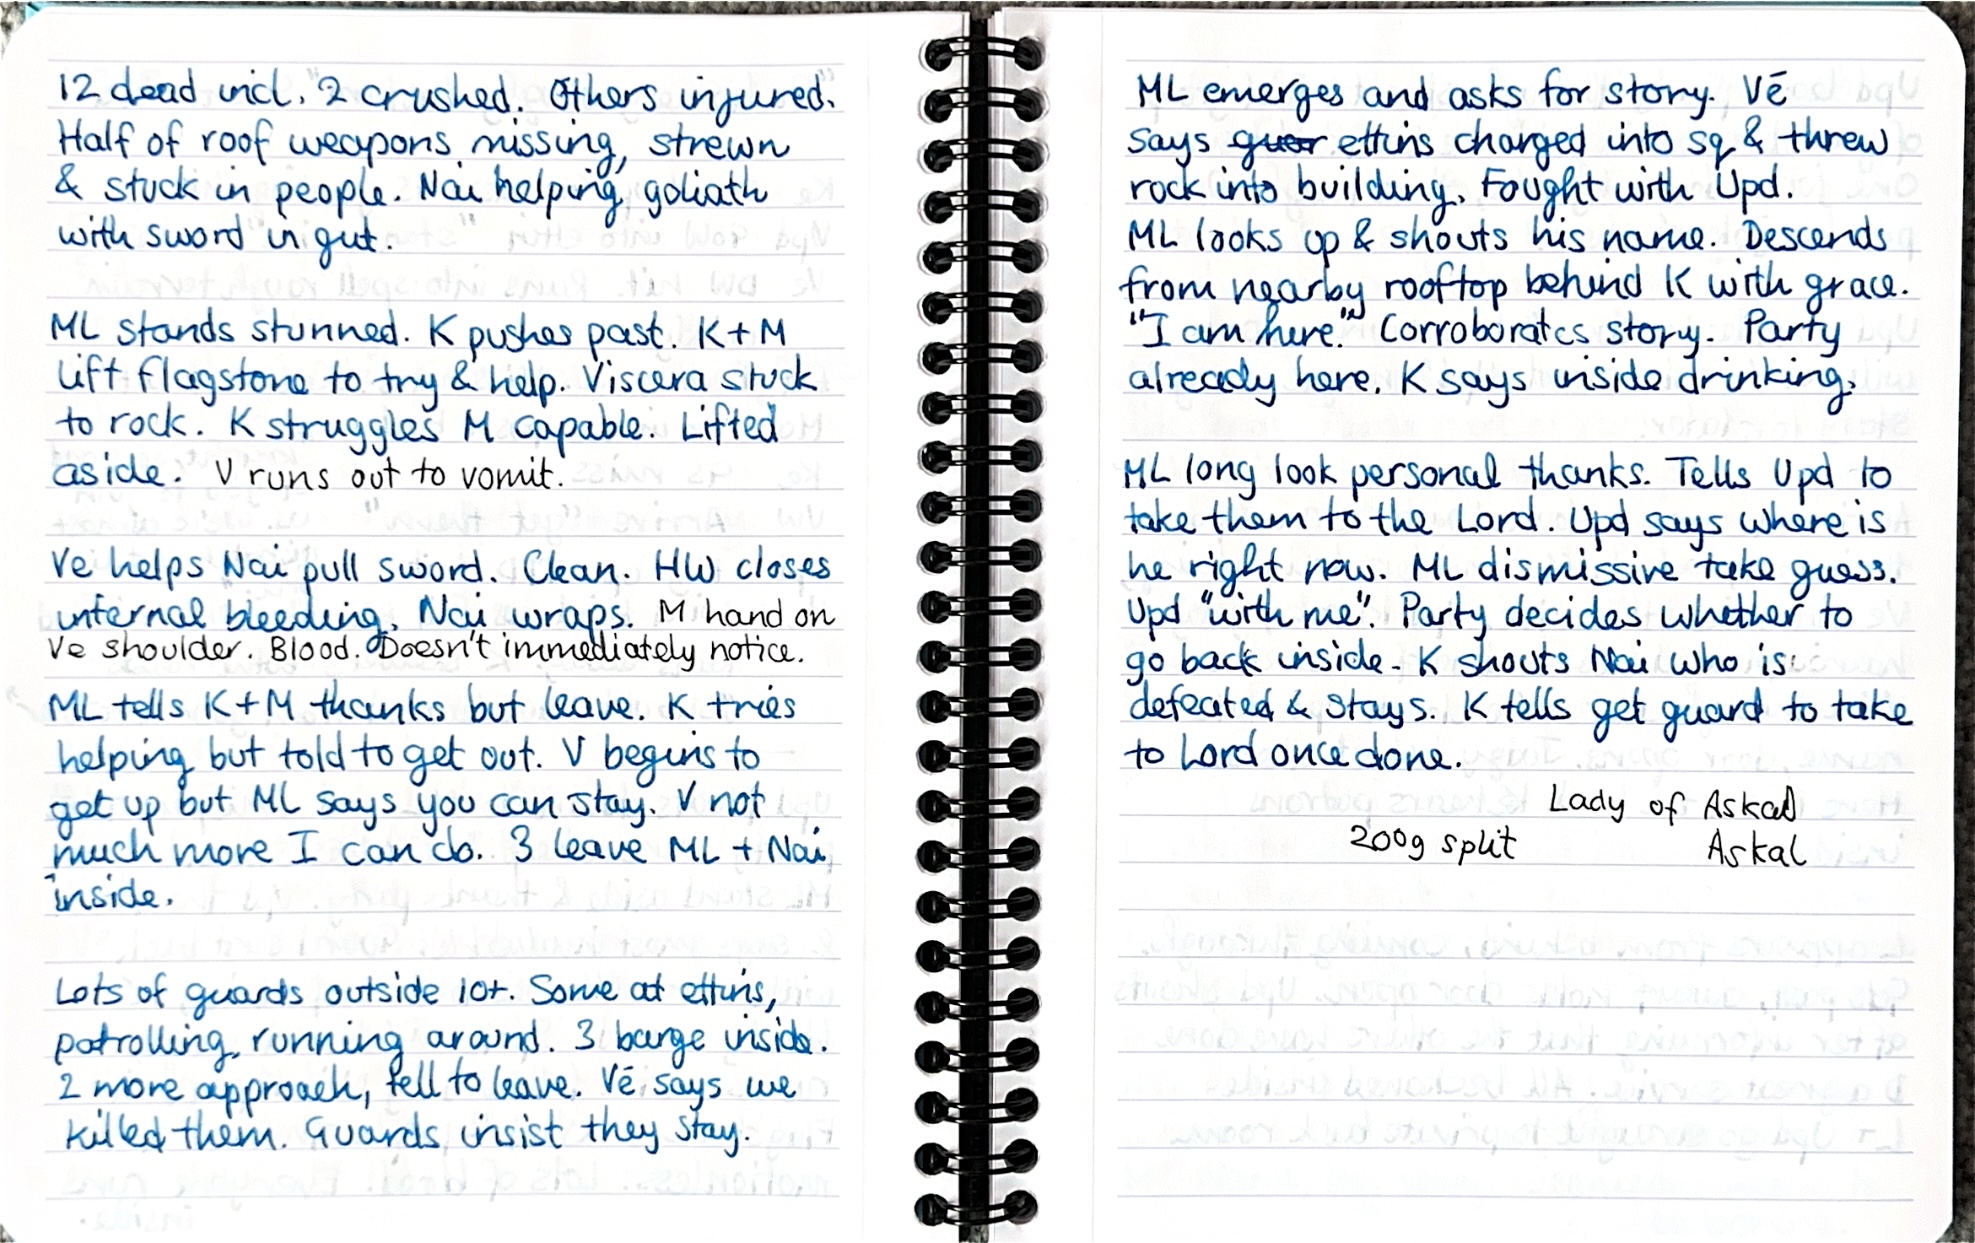 12 dead incl. 2 crushed. Others injured.
Half of roof weapons missing, strewn
& stuck in people. Nai helping goliath
with sword in gut.
ML stands stunned. K pushes past. K+M
lift flagstone to try & help. Viscera stuck
to rock. K struggles M capable. Lifted
aside. V runs out to vomit.
Ve helps Nai pull sword. Clean. HW closes
internal bleeding, Nai wraps. M hand on
Ve shoulder. Blood. Doesn't immediately notice.
ML tells K+M thanks but leave. K tries
helping but told to get out. V begins to
get up but ML says you can stay. V not
much more I can do. 3 leave ML + Nai
inside.
Lots of guards outside 10+. Some at ettins,
patrolling, running around. 3 barge inside.
2 more approach, tell to leave. Vē says we
killed them. Guards insist they stay.
ML emerges and asks for story. Vē
says ettins charged into sq & threw
rock into building. Fought with Upd.
ML looks up & shouts his name. Descends
from nearby rooftop behind K with grace.
"I am here." Corroborates story. Party
already here. K says inside drinking.
ML long look personal thanks. Tells Upd to
take them to the Lord. Upd says where is
he right now. ML dismissive take guess.
Upd "with me". Party decides whether to
go back inside. K shouts Nai who is
defeated & stays. K tells get guard to take
to Lord once done.
Lady of Askad
200g split Askal